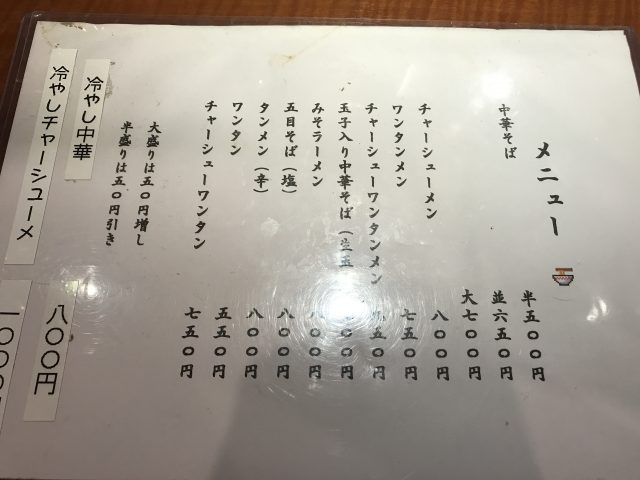 メニュー
中華そば 半五〇〇円
並六五〇円
大七〇〇円
チャーシューメン 八〇〇円
ワンタンメン 七五〇円
チャーシューワンタンメン 九五〇円
玉子入り中華そば（生玉 〇〇円
みそラーメン 八〇〇円
五目そば（塩） 八〇〇円
タンメン（辛） 八〇〇円
ワンタン 五五〇円
チャーシューワンタン 七五〇円
大盛りは五〇円増し
半盛りは五〇円引き
冷やし中華 八〇〇円
冷やしチャーシューメ 一〇〇〇円